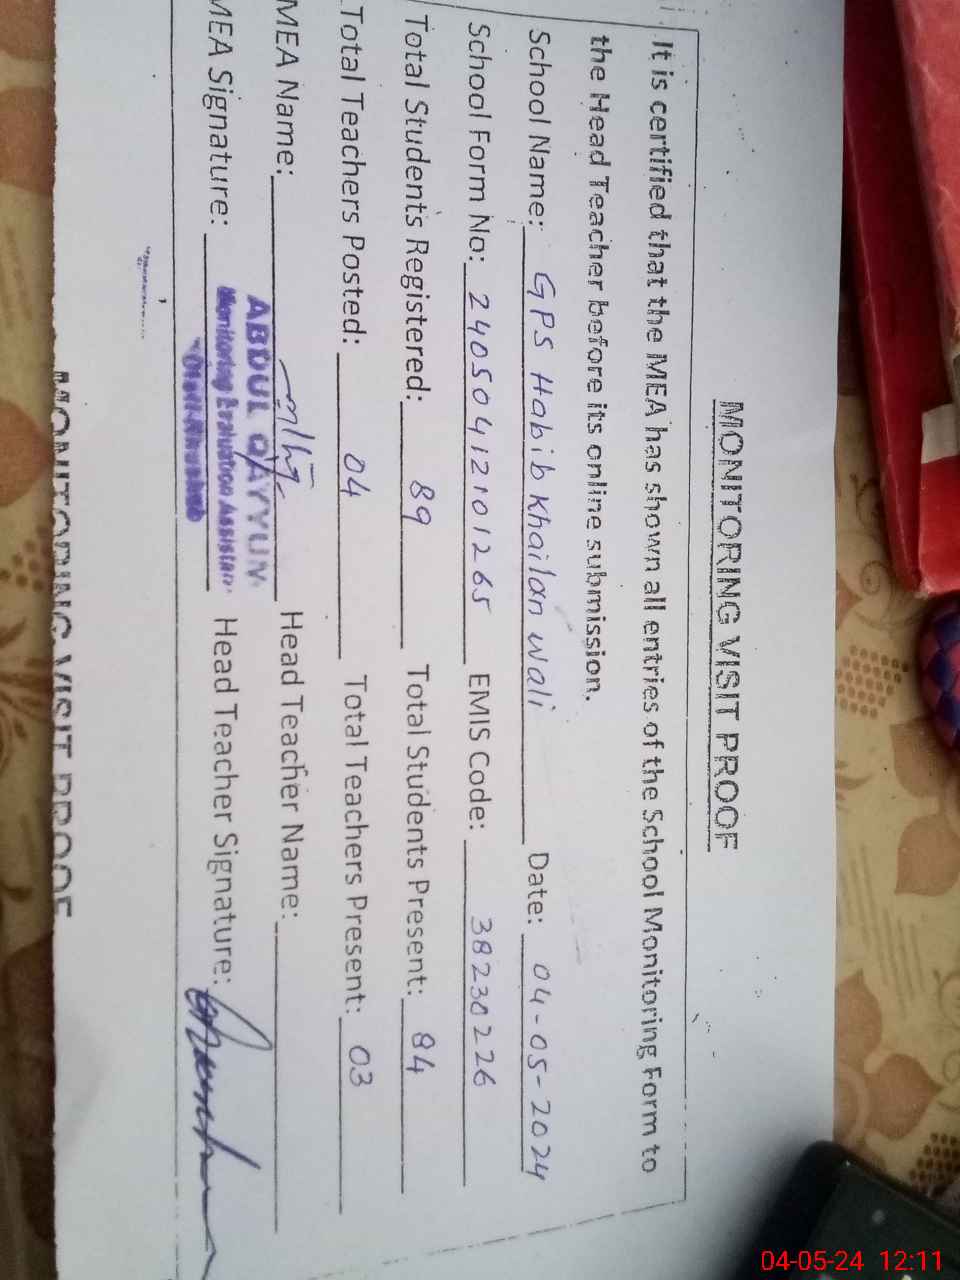 MONITORING VISIT PROOF
It is certified that the MEA has shown all entries of the School Monitoring Form to
the Head Teacher before its online submission.
School Name: GPS Habib Khailan wali Date: 04-05-2024
School Form No: 24050412101265 EMIS Code: 38230226
Total Students Registered: 89 Total Students Present: 84
Total Teachers Posted: 04 Total Teachers Present: 03
MEA Name: Head Teacher Name:
ABDUL QAYYUM
MEA Signature: Head Teacher Signature:
Monitoring Evaluation Assistant
MONITORING VISIT PROOF
04-05-24 12:11